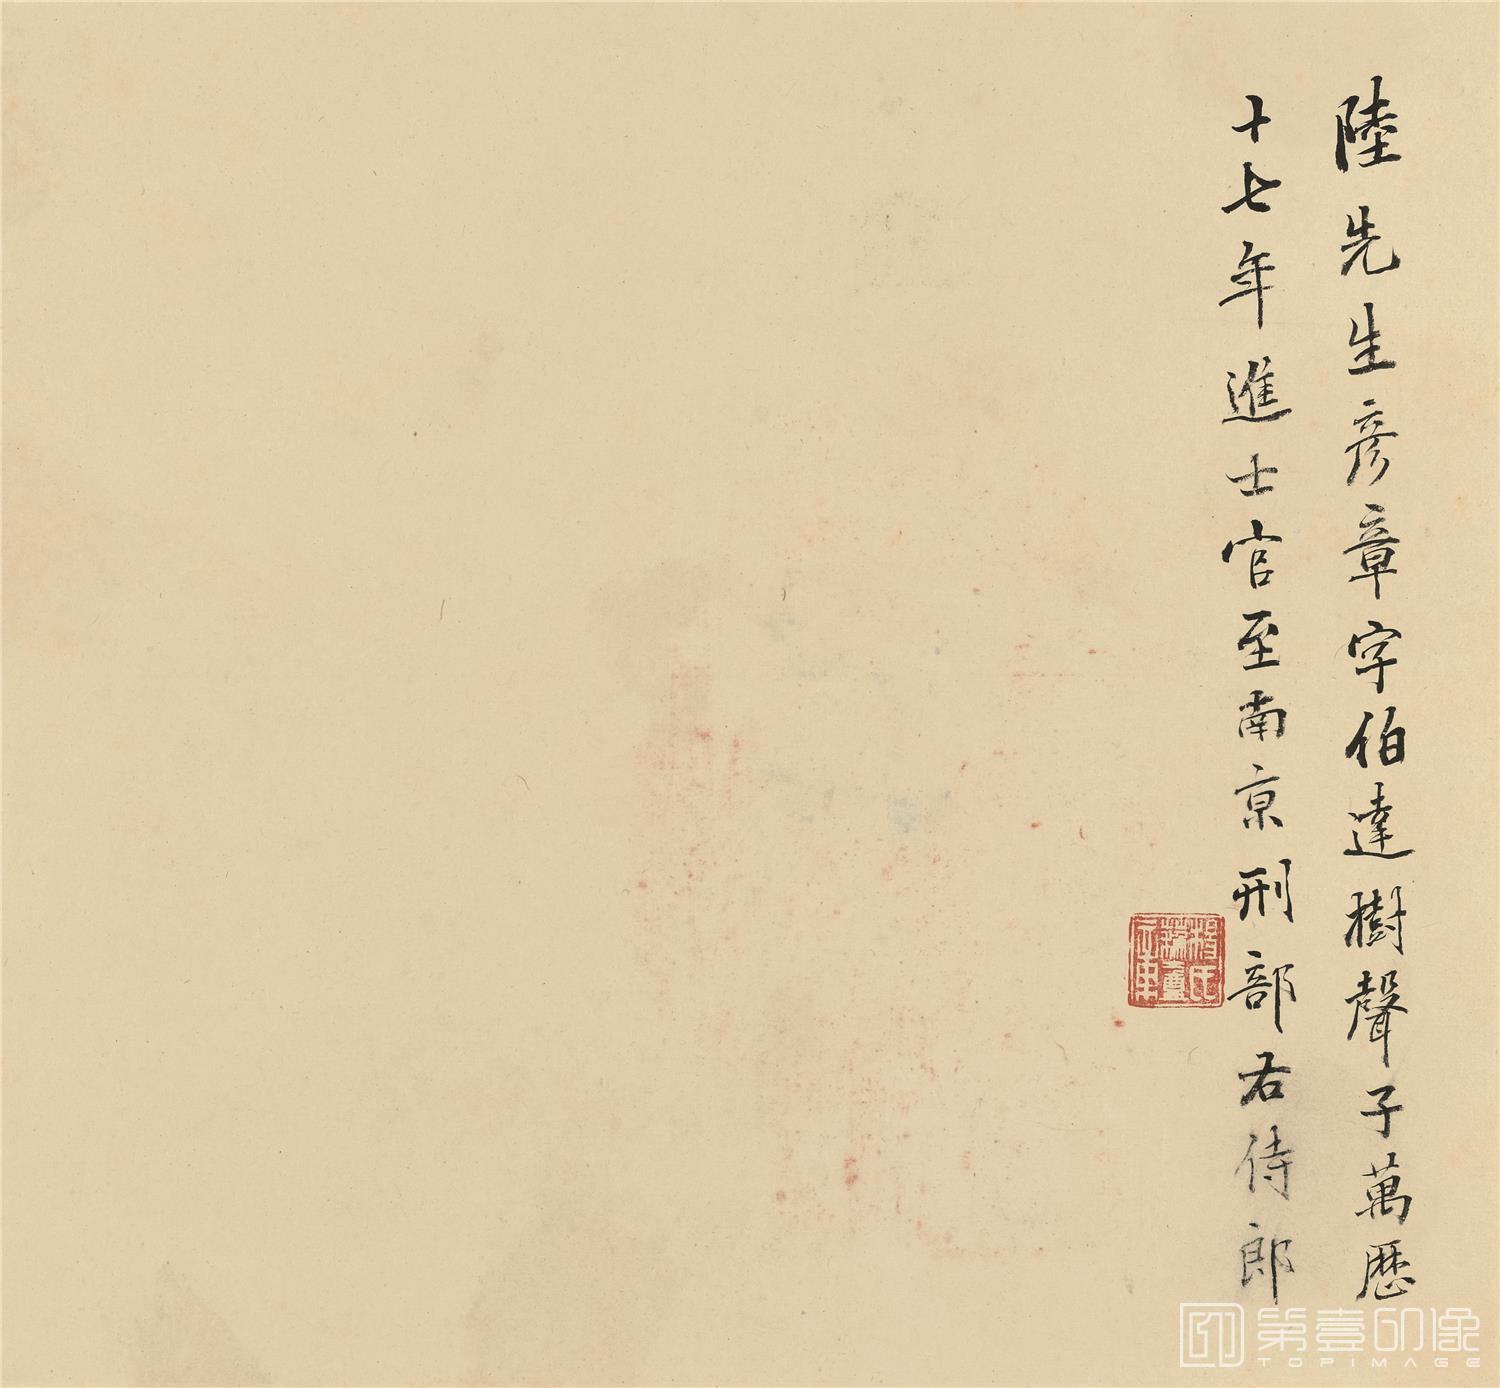 陸先生彦章字伯達樹聲子萬歷
十七年進士官至南京刑部右侍郎
第壹印像
TOPIMAGE